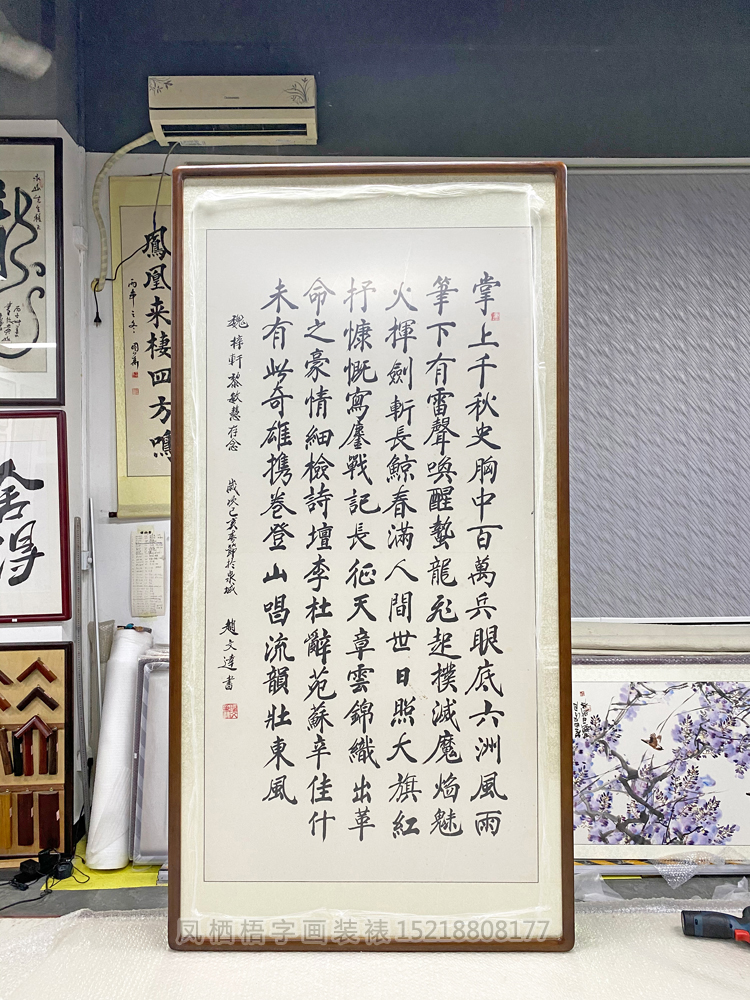 掌上千秋史胸中百萬兵眼底六洲風雨
筆下有雷聲喚醒蟄龍飛起撲滅魔焰魅
火揮劍斬長鯨春滿人間世日照大旗紅
抒慷慨寫鏖戰記長征天章雲錦織出革
命之豪情細檢詩壇李杜辭苑蘇辛佳什
未有此奇雄携卷登山唱流韻壯東風
魏梓軒 黎敏慧存念 歲次己亥春節於泉城 趙文達書
鳳凰来棲四方鳴
丙申之冬
舍得
凤栖梧字画装裱15218808177